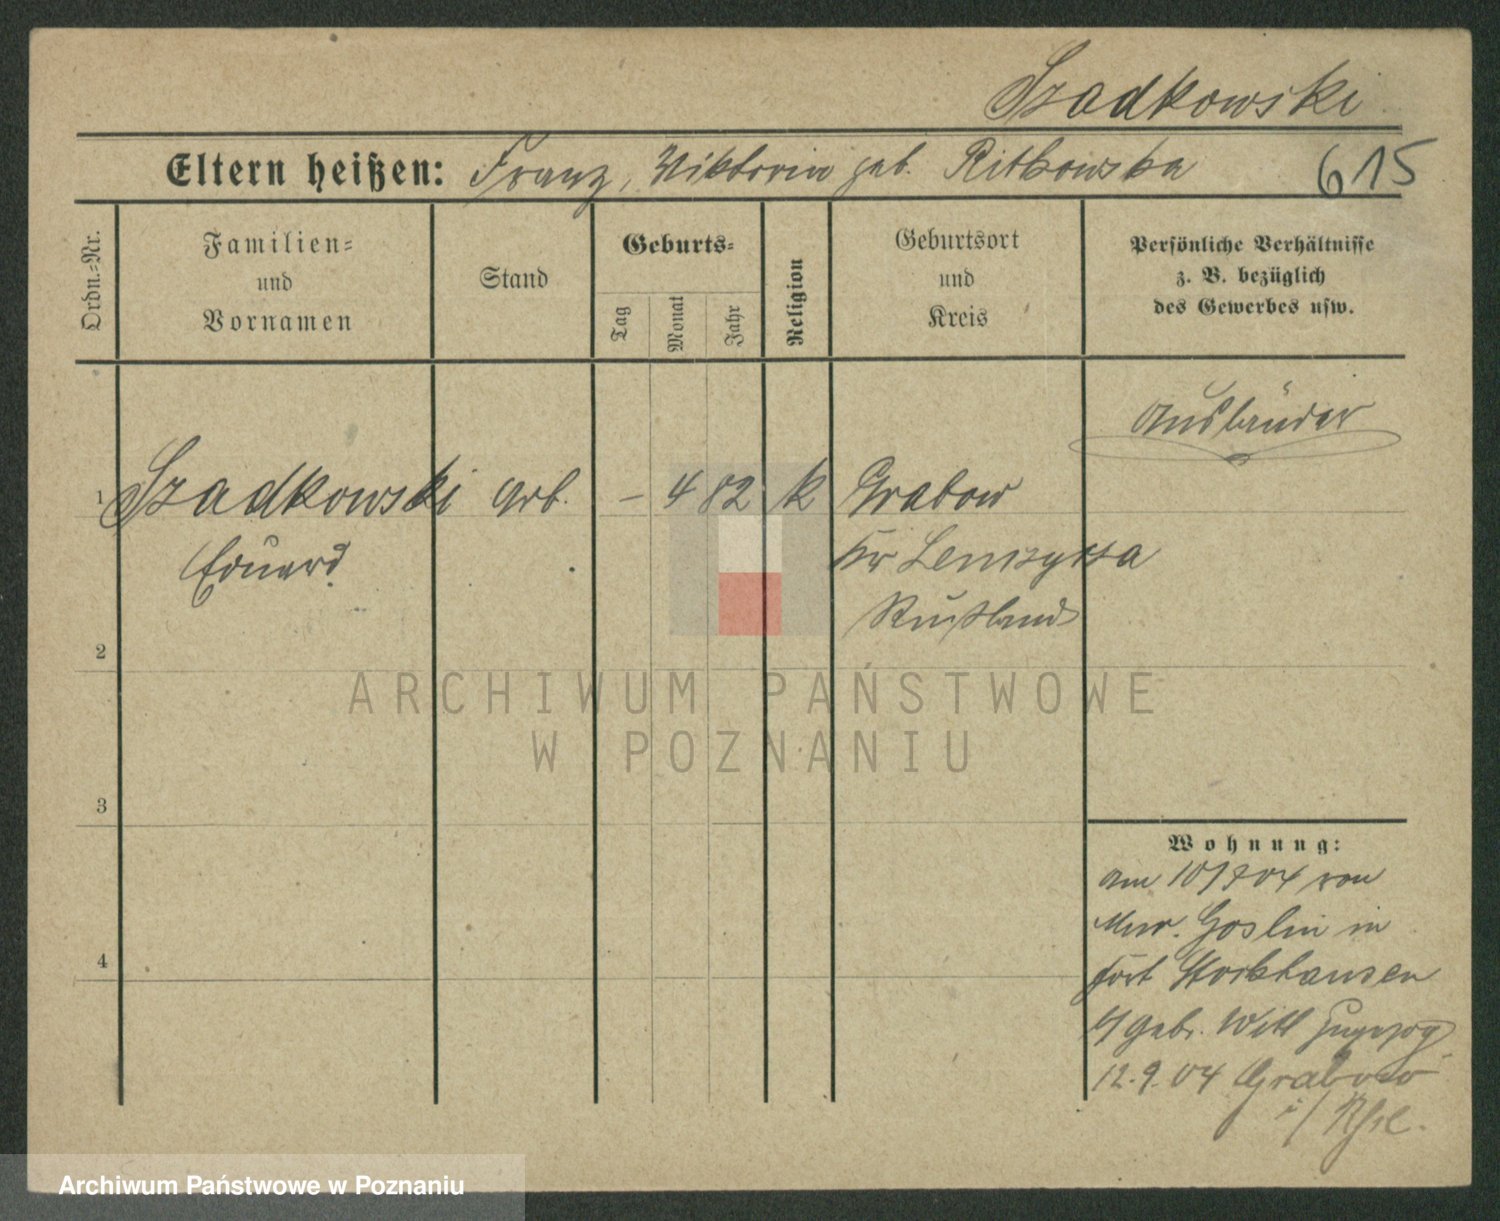 Szadkowski
Eltern heißen: Franz, Viktoria geb. Ritkowska
615
Ordn.=Nr.
Familien=
und
Vornamen
Stand
Geburts=
Tag
Monat
Jahr
Religion
Geburtsort
und
Kreis
Persönliche Verhältnisse
z. B. bezüglich
des Gewerbes usw.
Ausländer
1 Szadkowski Arb. – 4 82 k Grabow
Eduard Kr Lenczyca
Rußland
2
3
4
Wohnung:
am 10/9 04 von
Mur. Goslin in
Fort
Gebr. Witt zugezog
12.9.04 Grabow
i/
ARCHIWUM PAŃSTWOWE
W POZNANIU
Archiwum Państwowe w Poznaniu